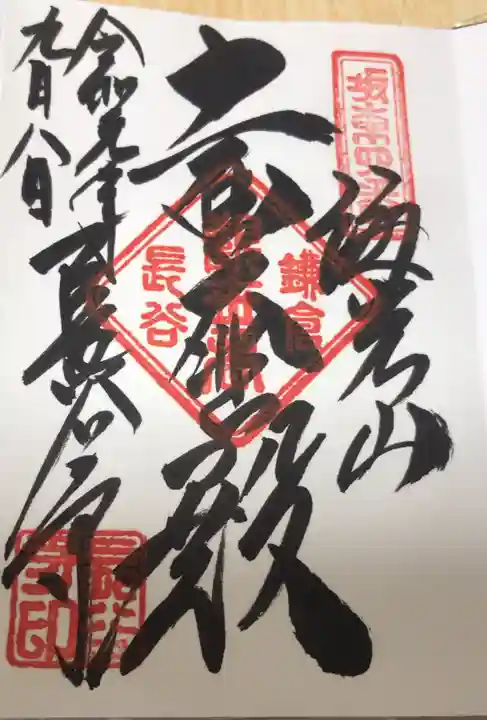 坂東
海光山
十一面大悲殿
鎌倉
長谷
令和元年
九月八日
長谷寺
長谷寺印